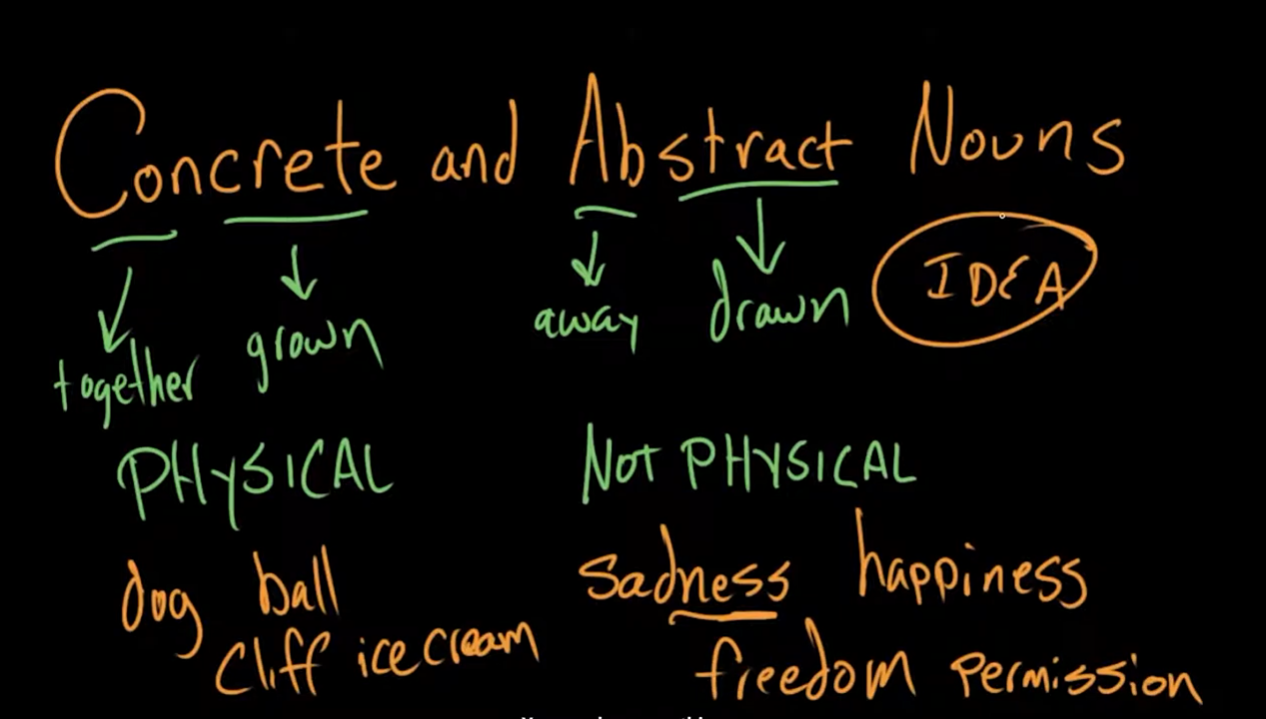 Concrete and Abstract Nouns
IDEA
together grown away drawn
PHYSICAL NOT PHYSICAL
dog ball sadness happiness
cliff ice cream freedom permission